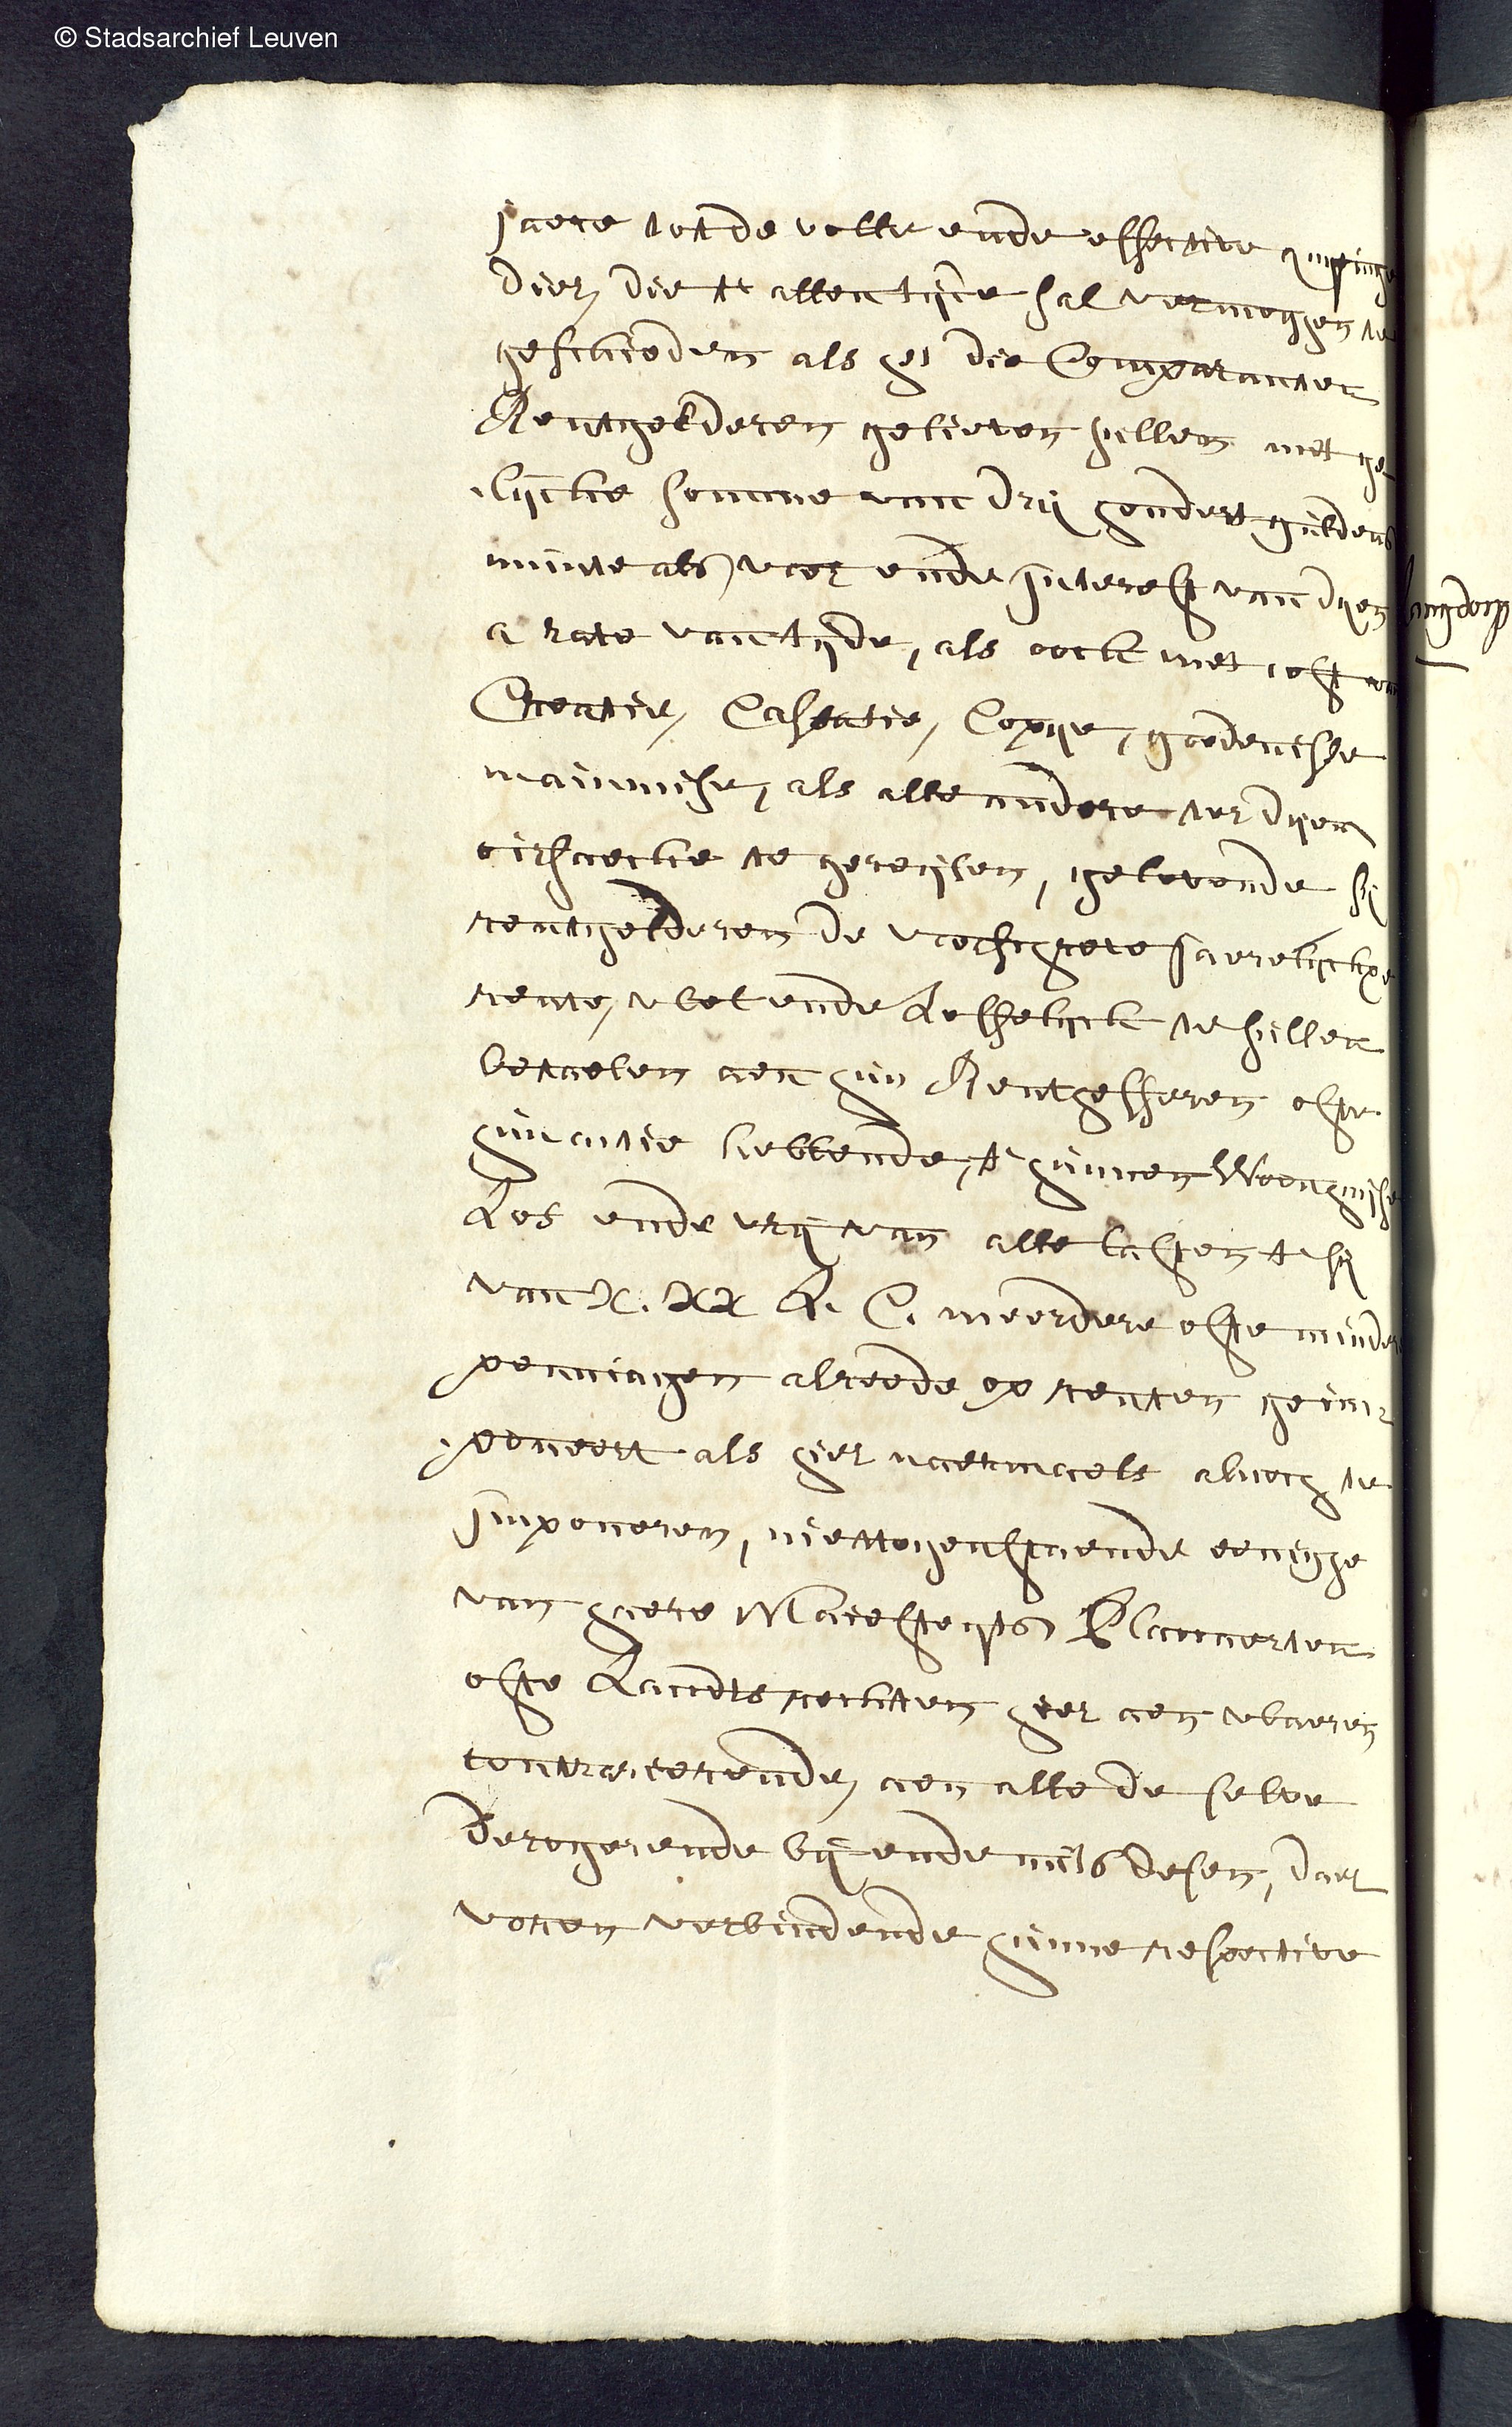 © Stadsarchief Leuven
jaere tot de volle ende effective quijtinge
dier, die tt allen tijde sal vermogen te
geschieden als het die Comparanten
Rentgelderen gelieven sullen met ge
lijcke somme van drij hondert guldens
munte als voor ende interest van dijen
a rato van tijde, als oock met cost van
Creatie, Cassatie, Copije, goedenisse
mainmise, als alle andere ter dijer
oirsaecke te gereijsen, gelovende sij
rentgelderen de voorschreve jaerelijckxe
rente, wel ende Loffelijck te sullen
betaelen aen hun Rentgefferen ofte
hun actie hebbende, t' hunnen Woonhuijse
Los ende vrij van alle lasten t' sij
van X. XX L. C. meerdere ofte mindere
penningen alreede op renten geim
poneert als hier naermaels alnoch te
imponeren, niettegenstaende eenige
van haere Maiesteyts Placcaerten
ofte Landtsrechten hier aen waeren
contrarierende, aen alle de selve
Derogerende bij ende mits desen, daer
voren verbindende hunne respective
langdorp